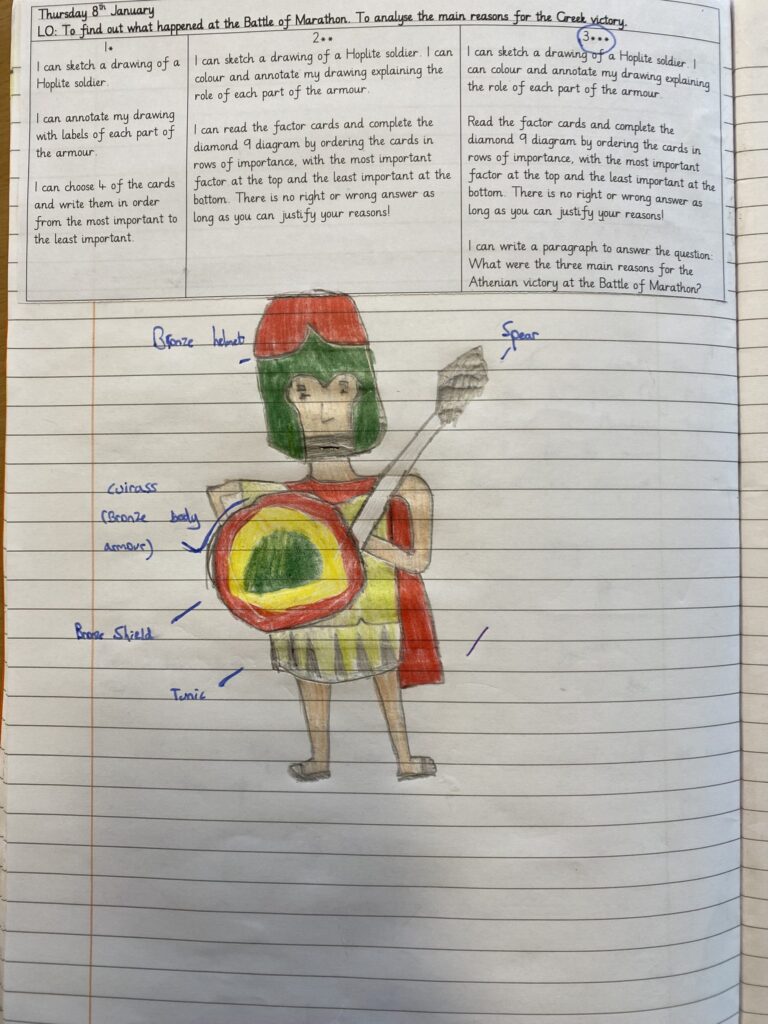 Thursday 8th January
LO: To find out what happened at the Battle of Marathon. To analyse the main reasons for the Greek victory.
1•
I can sketch a drawing of a
Hoplite soldier.
I can annotate my drawing
with labels of each part of
the armour.
I can choose 4 of the cards
and write them in order
from the most important to
the least important.
2••
I can sketch a drawing of a Hoplite soldier. I can
colour and annotate my drawing explaining the
role of each part of the armour.
I can read the factor cards and complete the
diamond 9 diagram by ordering the cards in
rows of importance, with the most important
factor at the top and the least important at the
bottom. There is no right or wrong answer as
long as you can justify your reasons!
3•••
I can sketch a drawing of a Hoplite soldier. I
can colour and annotate my drawing explaining
the role of each part of the armour.
Read the factor cards and complete the
diamond 9 diagram by ordering the cards in
rows of importance, with the most important
factor at the top and the least important at the
bottom. There is no right or wrong answer as
long as you can justify your reasons!
I can write a paragraph to answer the question:
What were the three main reasons for the
Athenian victory at the Battle of Marathon?
Bronze helmet
Spear
cuirass
(Bronze body
armour)
Bronze Shield
Tunic